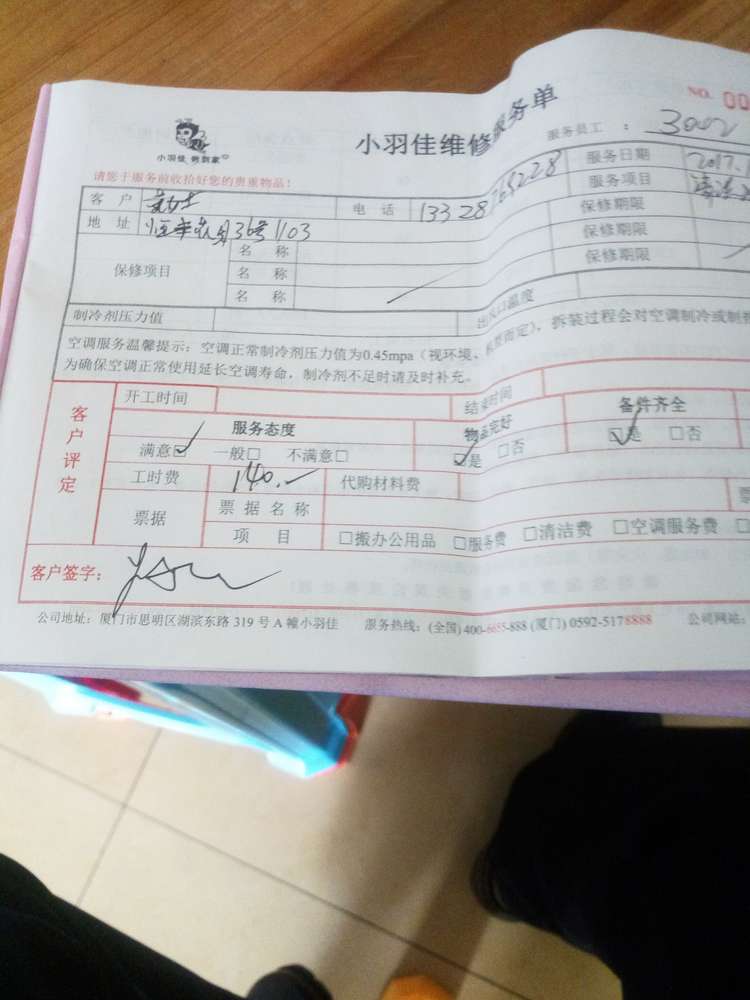 NO. 00
小羽佳维修服务单
小羽佳 俏到家
服务员工 : 3002
请您于服务前收拾好您的贵重物品!
服务日期 2017.1
客 户 电 话 133 28 服务项目
地 址 36号 1103 保修期限
保修项目 名 称 保修期限
名 称 保修期限
名 称
制冷剂压力值 出风口温度
空调服务温馨提示:空调正常制冷剂压力值为0.45mpa(视环境、 而定),拆装过程会对空调制冷或制
为确保空调正常使用延长空调寿命,制冷剂不足时请及时补充。
客户评定
开工时间 结束时间
服务态度 物品完好 备件齐全
满意☑ 一般□ 不满意□ ☑是 □否 ☑是 □否
工时费 140.- 代购材料费
票据 票 据 名 称
项 目 □搬办公用品 □服务费 □清洁费 □空调服务费 □
客户签字:
公司地址:厦门市思明区湖滨东路 319 号 A 幢小羽佳 服务热线:(全国) 400-6655-888 (厦门) 0592-5178888 公司网站: